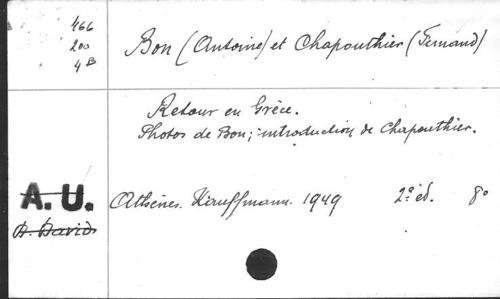 466
200
4B
Bon (Antoine) et Chapouthier (Fernand)
Retour en Grèce.
Photos de Bon; introduction de Chapouthier.
A.U. Athènes. Kauffmann. 1949 2e éd. 8°
D. David